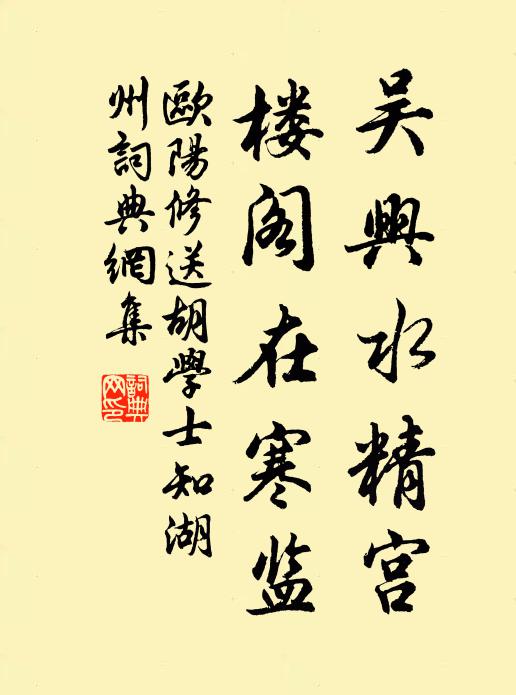 吴興水精宫
楼阁在寒监
歐陽修送胡學士知湖
州詞典網集
詞典網印